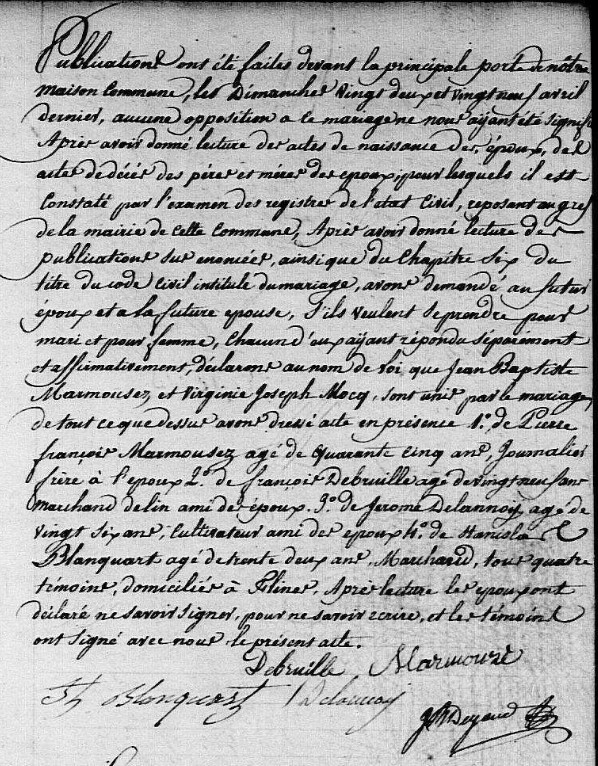 Publications ont été faites devant la principale porte de nôtre
maison Commune, les Dimanches vingt deux et vingt neuf avril
dernier, aucune opposition à ce mariage ne nous ayant été signifi
Après avoir donné lecture des actes de naissance des époux, de l
actes de décès des pères et mères des epoux, pour lesquels il est
Constaté par l'examen des registres de l'état Civil, reposant au gref
de la mairie de Cette Commune, Après avoir donné lecture des
publications sus enoncées, ainsi que du Chapitre Six du
titre du code Civil intitulé du mariage, avons demandé au futur
époux et a la future epouse, s'ils veulent se prendre pour
mari et pour femme, Chacun d'eux ayant répondu séparément
et affirmativement, déclarons au nom de loi que Jean Baptiste
Marmousez, et Virginie Joseph Mocq, sont unis par le mariage,
de tout ce que dessus avons dressé acte en présence 1°. de Pierre
françois Marmousez agé de quarante cinq ans, Journalier
frère à l'époux 2°. de françois Debruille agé de vingt neuf ans
marchand de lin ami des époux. 3°. de Jerome Delannoy, agé de
vingt six ans, Cultivateur ami des epoux 4°. de Stanislas
Blanquart agé de trente deux ans, Marchand, tous quatre
témoins, domiciliés à Flines, Après lecture les epoux ont
déclaré ne savoir signer, pour ne savoir ecrire, et les témoins
ont signé avec nous le présent acte.
Debruille Marmouze
Blanquart Delannoy